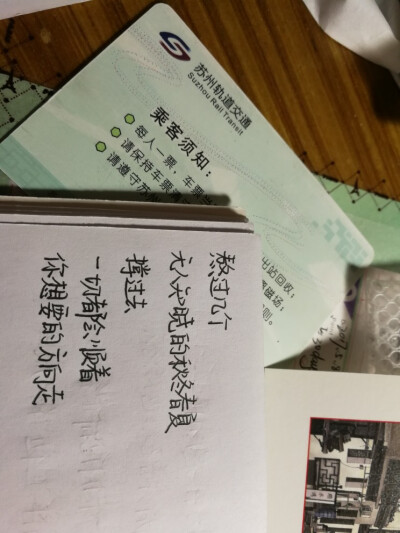 苏州轨道交通
Suzhou Rail Transit
乘客须知:
每人一票,车票
请保持车票清
请遵守苏
出站回收;
磁场;
则。
熬过几个
无人知晓的秋冬春夏
撑过去
一切都会顺着
你想要的方向走